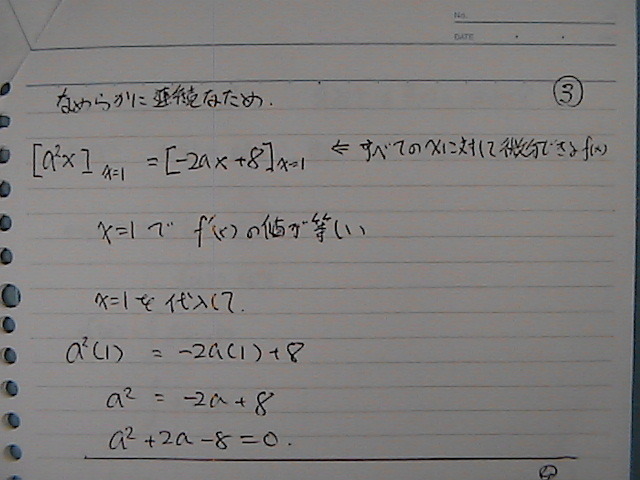 No.
DATE
③
なめらかに連続なため.
[a²x]ₓ₌₁ = [-2ax+8]ₓ₌₁ ⇐ すべてのxに対して微分できるf(x)
x=1で f'(x)の値が等しい
x=1を代入して.
a²(1) = -2a(1)+8
a² = -2a+8
a²+2a-8=0.